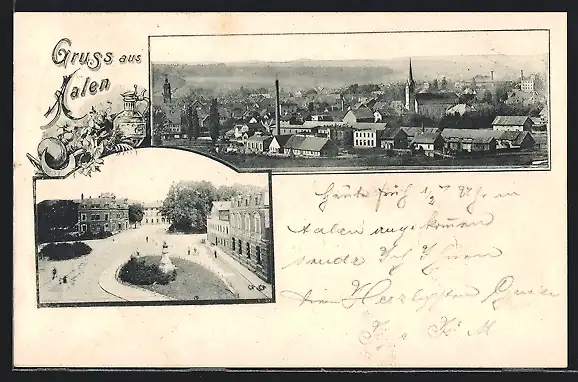 Gruss aus
Aalen
Heute früh 1/2 7 Uhr in
Aalen angekommen
sende ich Ihnen
die Herzlichsten Grüße